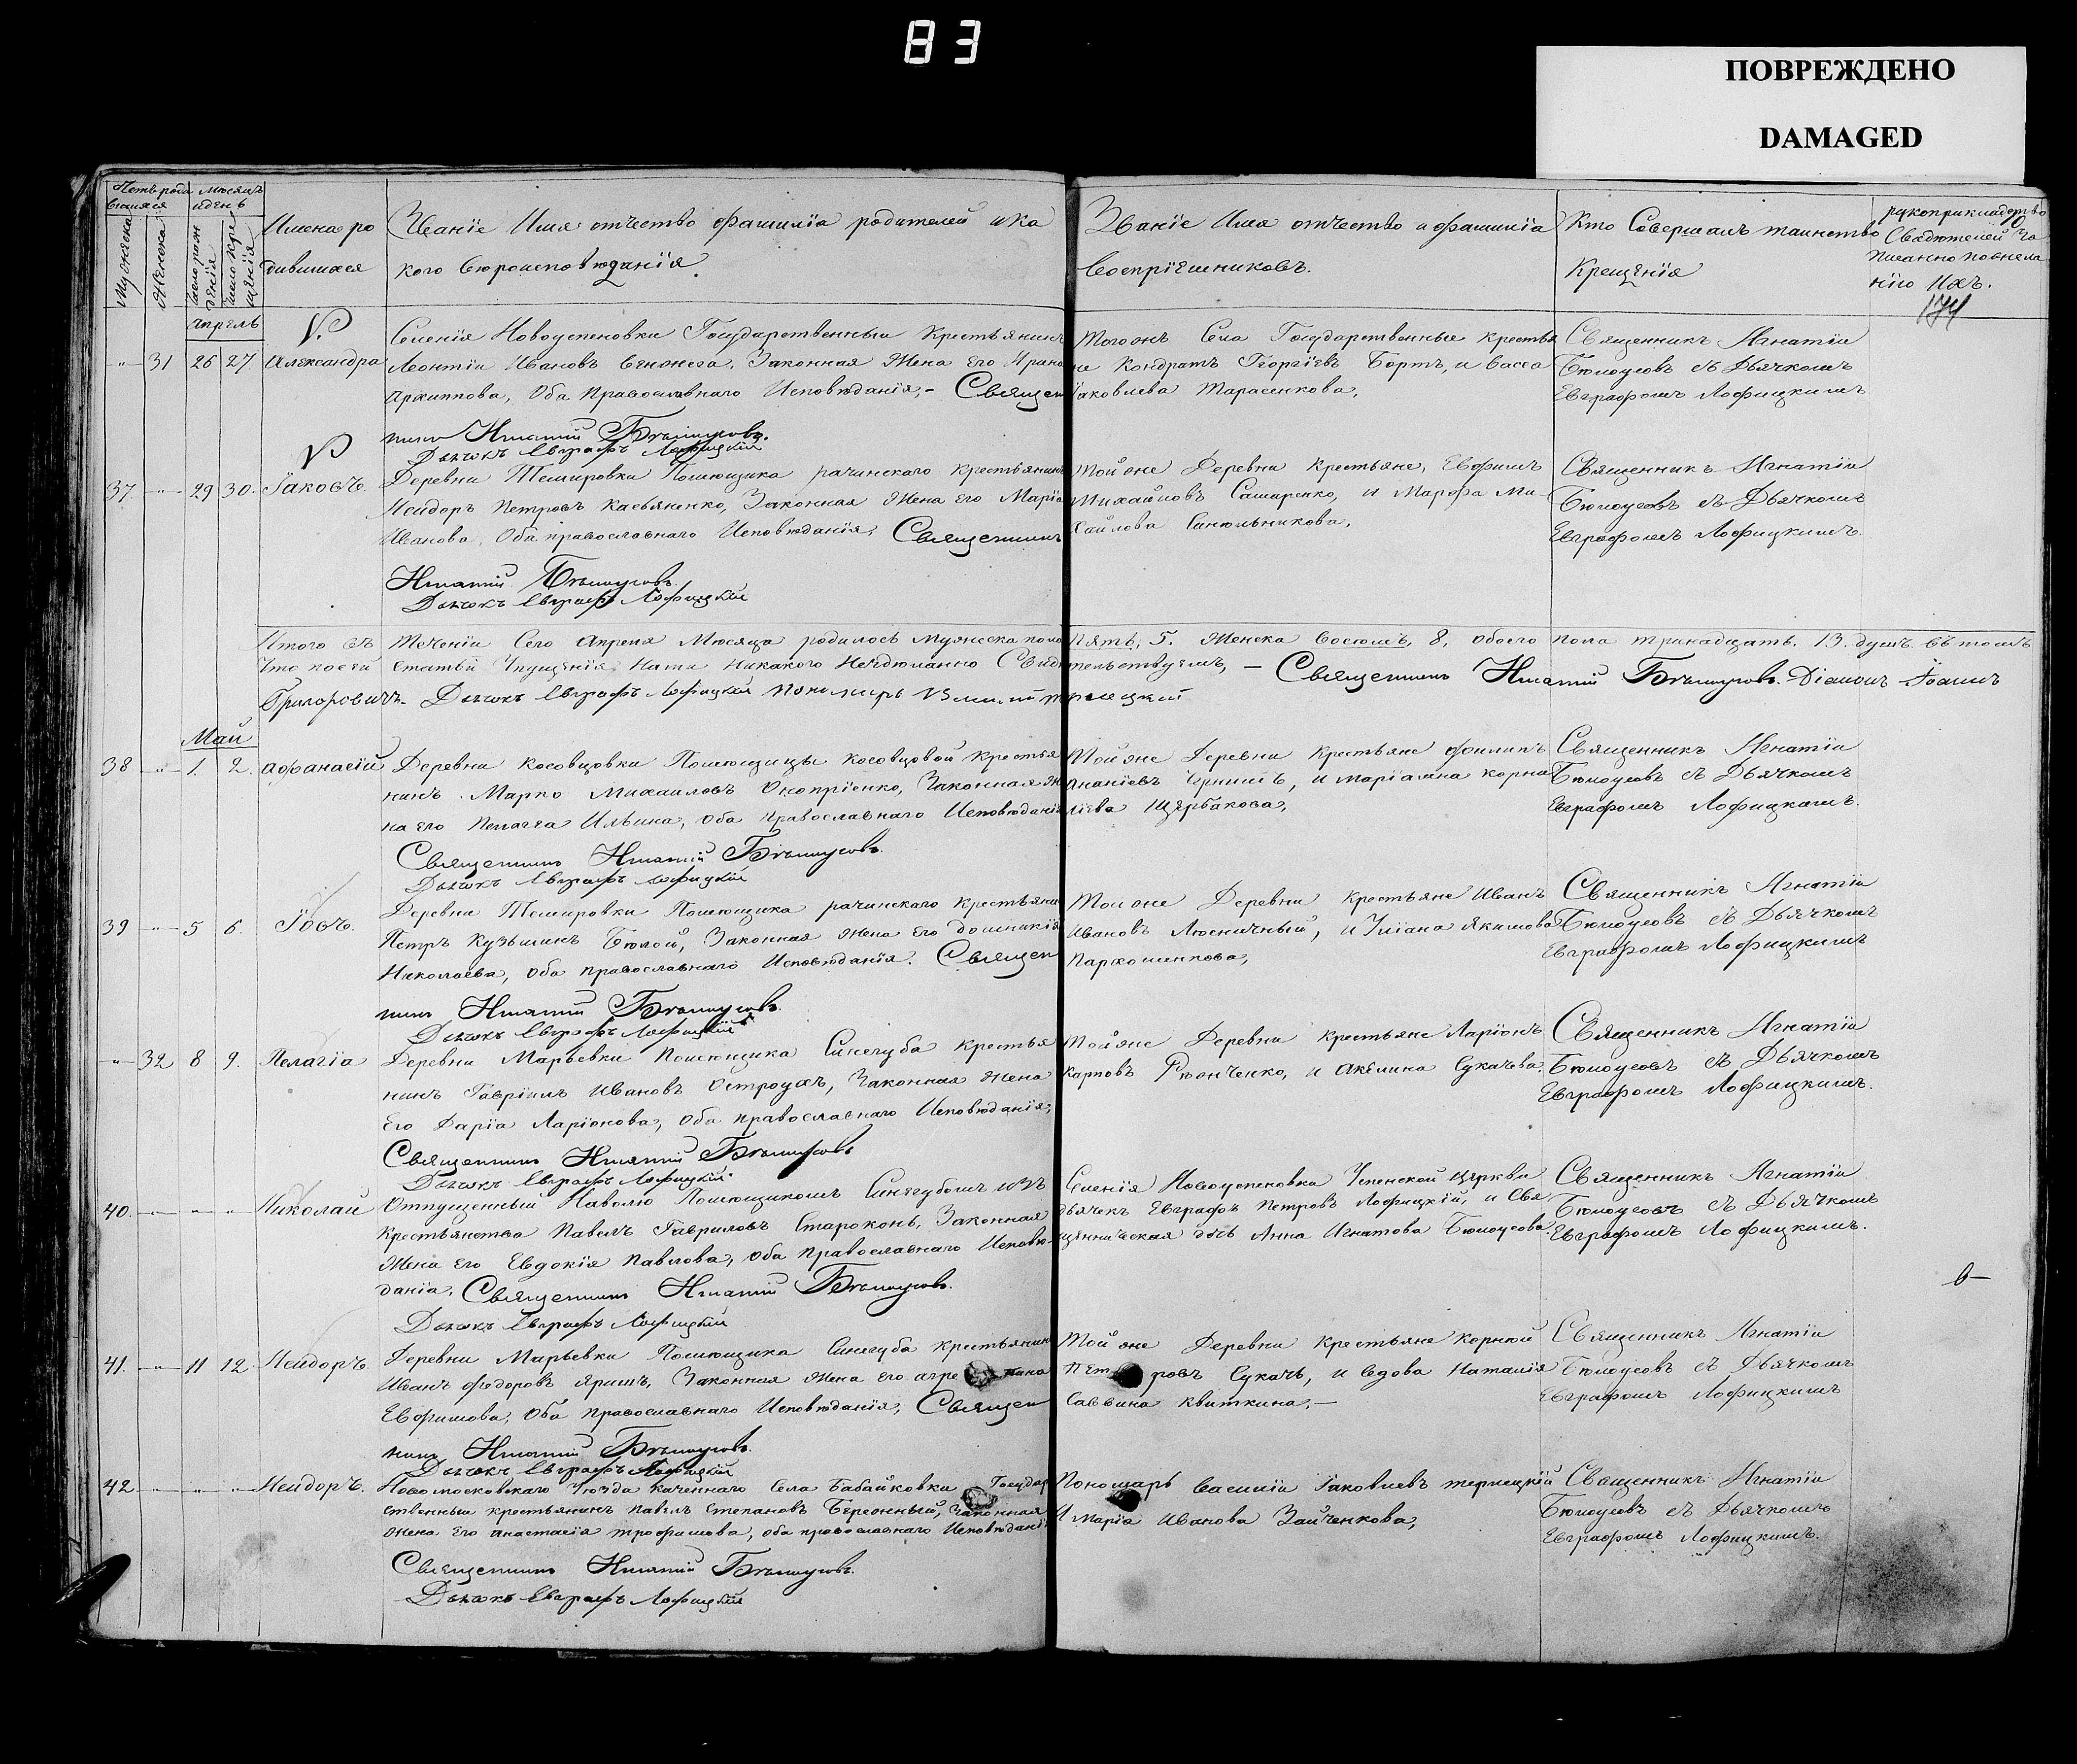 83
ПОВРЕЖДЕНО
DAMAGED
Счетъ родившихся
Мужеска
Женска
Мѣсяцъ и день
Число рожденія
Число крещенія
Имена родившихся
Званіе Имя отчество фамилія родителей и какого вѣроисповѣданія
Званіе Имя отчество и фамилія Воспріемниковъ.
Кто Совершалъ таинство Крещенія
рукоприкладство Свидѣтелей Записанно пожеланію Ихъ.
174
апрель
31 26 27 Александра
Селенія Новоуспеновки Государственный Крестьянинъ
Леонтій Ивановъ Законная Жена Его
Архиппова, Оба Православнаго Исповѣданія,- Священ
никъ Игнатий Бѣлоусовъ.
Дьячокъ Евграфъ Лофицкій
Тогожъ Села Государственные крестья
не Кондратъ Георгіевъ Бортъ, и Васса
Іаковлева Тарасенкова,
Священникъ Игнатіи
Бѣлоусовъ съ Дьячкомъ
Евграфомъ Лофицкимъ
37 29 30. Іаковъ.
Деревни Темировки Помѣщика рачинскаго крестьянинъ
Исидоръ Петровъ Касьяненко, Законная Жена Его Марія
Иванова, Оба православнаго Исповѣданія, Священникъ
Игнатий Бѣлоусовъ.
Дьячокъ Евграфъ Лофицкій
Той же Деревни крестьяне, Евфимъ
Михайловъ Самаренко, и Марфа Ми-
хайлова Синѣльникова,
Священникъ Игнатіи
Бѣлоусовъ съ Дьячкомъ
Евграфомъ Лофицкимъ.
Итого въ теченіи Сего Апреля Мѣсяца родилось Мужеска пола Пять, 5. Женска Восѣмъ, 8, обоего пола тринадцать. 13. душъ. въ томъ
Что по сей статьи упущенія Нами Никакого Нездѣланно Свидѣтельствуемъ, - Священникъ Игнатий Бѣлоусовъ. Діаконъ Іоаннъ
Григоровичъ. Дьячокъ Евграфъ Лофицкій Пономарь
Май
38 1. 2. Афанасіи
Деревни Косовцовки Помѣщицы Косовцовой крестья
нинъ Марко Михаиловъ Оноприенко, Законная Же
на Его Пелагея Ильина, Оба православнаго Исповѣданія
Священникъ Игнатий Бѣлоусовъ.
Дьячокъ Евграфъ Лофицкій
Той же Деревни крестьяне Филипъ
Ананіевъ и Маріамна корни
лиева Щербакова,
Священникъ Игнатіи
Бѣлоусовъ съ Дьячкомъ
Евграфомъ Лофицкимъ.
39 5 6. Іовъ.
Деревни Темировки Помѣщика рачинскаго крестьянин
Петръ Кузьминъ Бѣлой, Законная Жена Его домникія
Николаева, Оба православнаго Исповѣданія. Священ
никъ Игнатий Бѣлоусовъ.
Дьячокъ Евграфъ Лофицкій
Той же Деревни крестьяне Иванъ
Ивановъ Лѣсничный, и Уліана Якимова
Пархоменкова,
Священникъ Игнатіи
Бѣлоусовъ съ Дьячкомъ
Евграфомъ Лофицкимъ
32 8 9. Пелагіа
Деревни Марьевки Помѣщика Синегуба крестья
нинъ Гавріилъ Ивановъ Остроухъ, Законная Жена
Его Дарія Ларіонова, Оба православнаго Исповѣданія,
Священникъ Игнатий Бѣлоусовъ
Дьячокъ Евграфъ Лофицкій
Той же Деревни крестьяне Ларіонъ
Карповъ и Акелина Сукачева.
Священникъ Игнатіи
Бѣлоусовъ съ Дьячкомъ
Евграфомъ Лофицкимъ.
40. Николай
Отпущенный Наволю Помѣщикомъ Синегубомъ изъ
Крестьянства Павелъ Гавриловъ Староконь, Законная
Жена Его Евдокія Павлова, Оба православнаго Исповѣ-
данія, Священникъ Игнатий Бѣлоусовъ.
Дьячокъ Евграфъ Лофицкій
Селенія Новоуспеновка Успенской Церкви
дьячекъ Евграфъ Петровъ Лофицкій, и Свя
щенническая дочь Анна Игнатова Бѣлоусова.
Священникъ Игнатіи
Бѣлоусовъ съ Дьячкомъ
Евграфомъ Лофицкимъ.
41. 11 12. Исидоръ.
Деревни Марьевки Помѣщика Синегуба крестьянин
Иванъ Федоровъ Яришъ, Законная Жена Его
Евфимова, Оба православнаго Исповѣданія, Священ
никъ Игнатий Бѣлоусовъ.
Дьячокъ Евграфъ Лофицкій
Той же Деревни крестьяне Корнѣй
Петровъ Сукачь, и вдова Наталія
Саввина Квиткина,-
Священникъ Игнатіи
Бѣлоусовъ съ Дьячкомъ
Евграфомъ Лофицкимъ
42 Исидоръ.
Новомосковскаго Уѣзда Казеннаго Села Бабайковки Государ
ственный крестьянинъ Павелъ Степановъ Бережный, Законная
Жена Его Анастасія Трофимова, Оба православнаго Исповѣданія
Священникъ Игнатий Бѣлоусовъ.
Дьячокъ Евграфъ Лофицкій
Пономарь Василіи Іаковлевъ
И Марія Иванова Зайченкова,
Священникъ Игнатіи
Бѣлоусовъ съ Дьячкомъ
Евграфомъ Лофицкимъ.